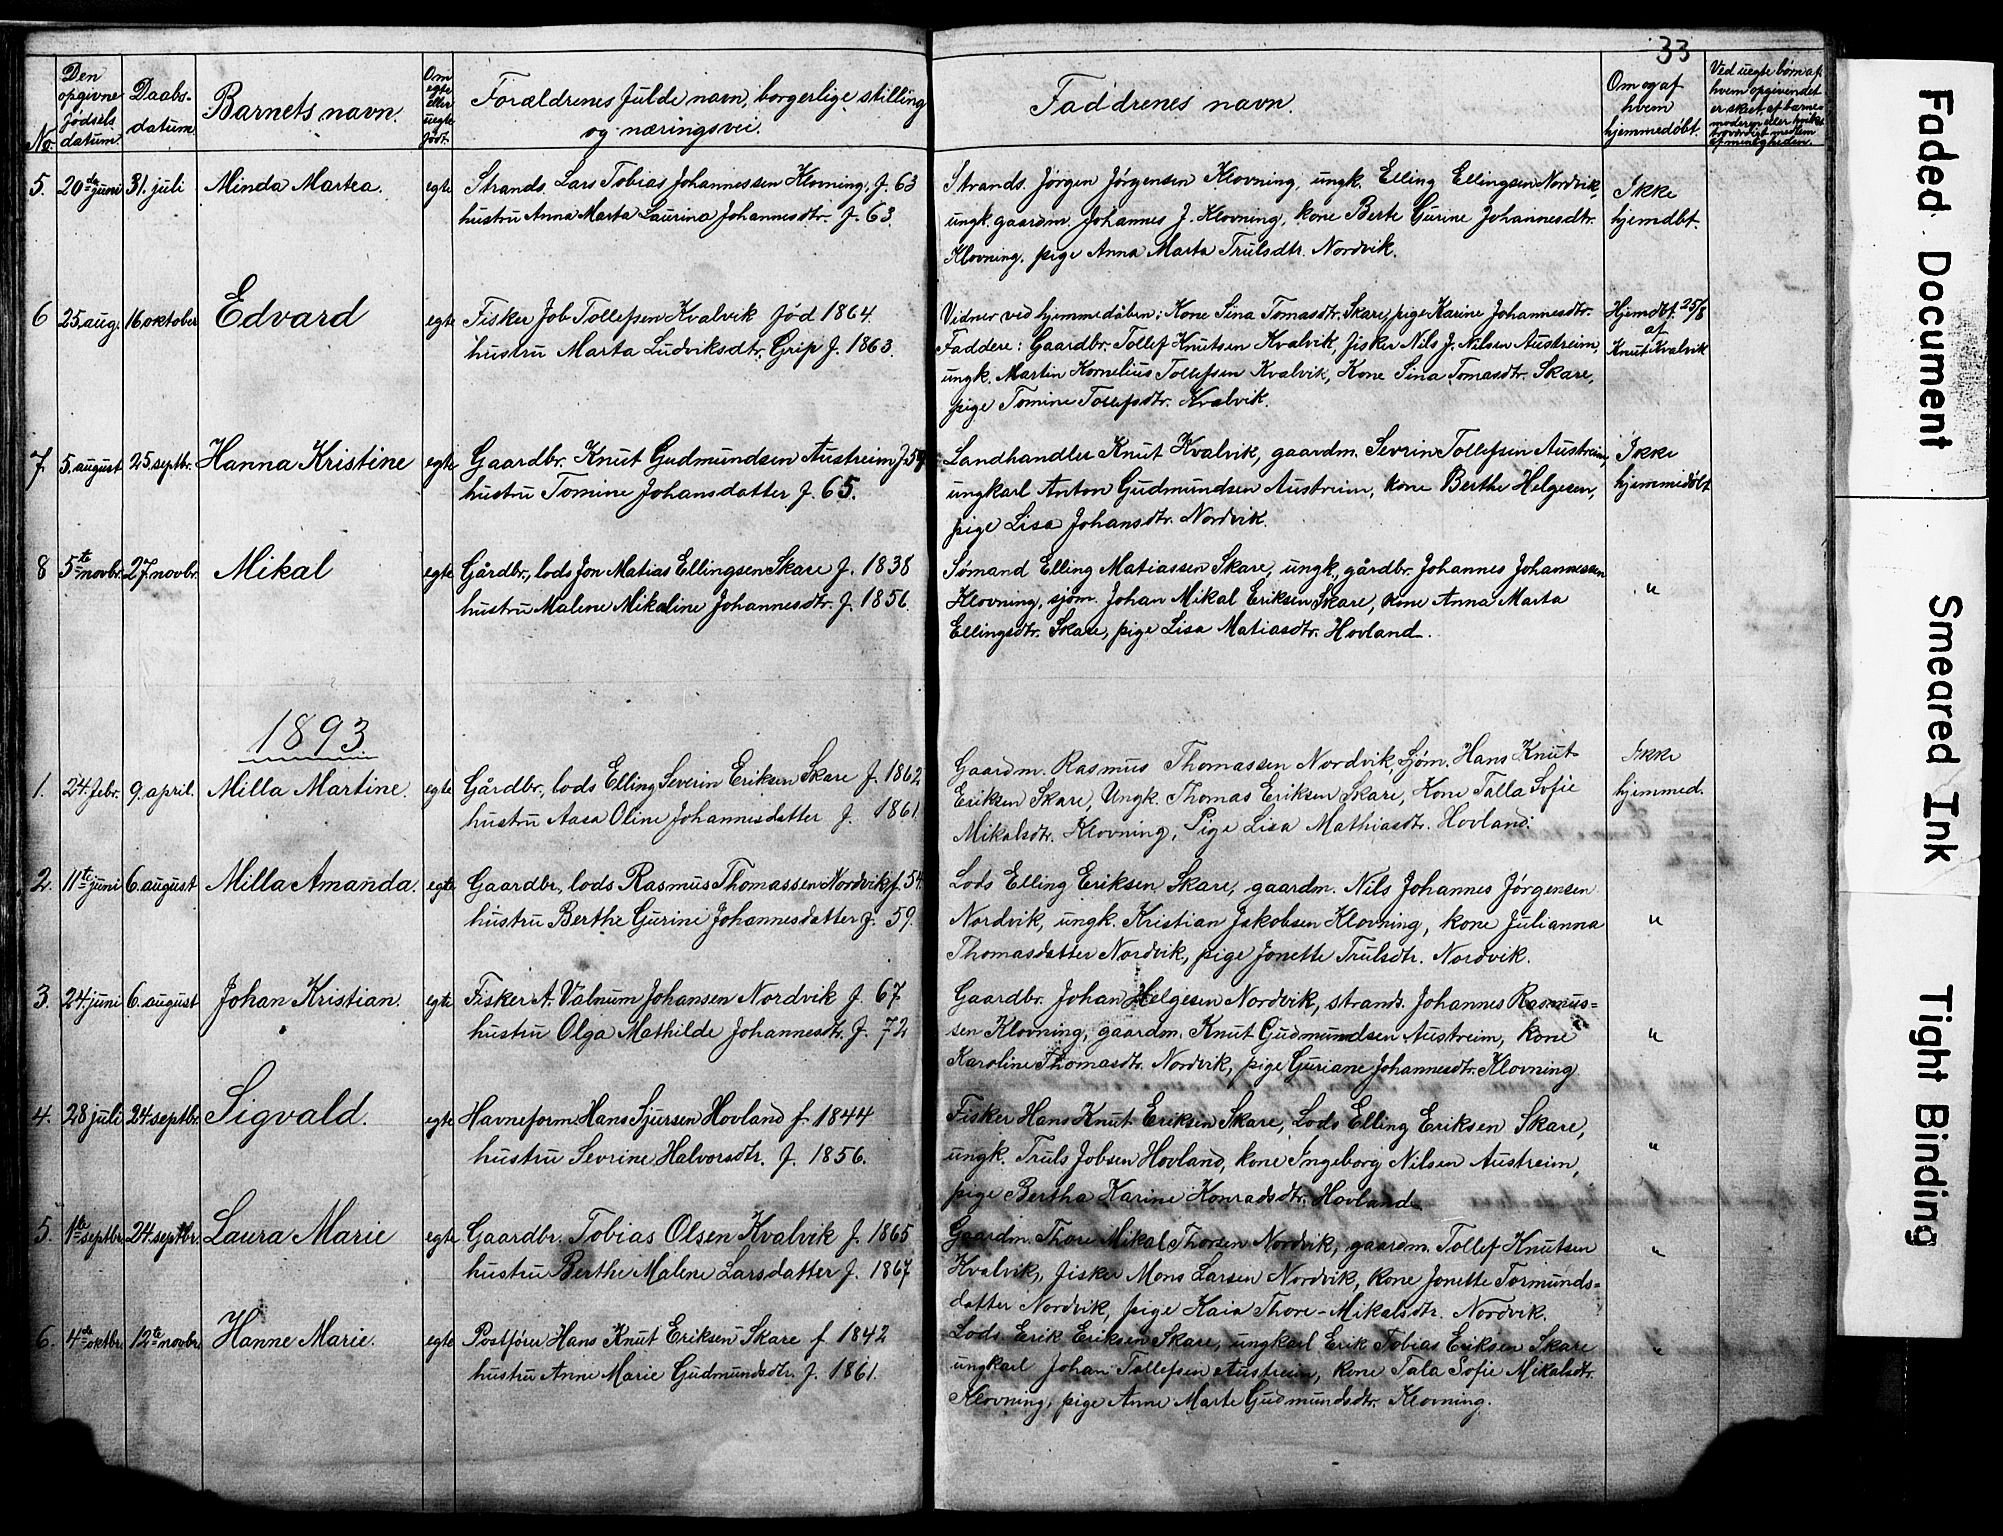 33
No.
Den opgivne fødsels datum.
Daabs-datum.
Barnets navn.
Om egte eller uegte født.
Forældrenes fulde navn, borgerlige stilling
og næringsvei.
Faddrenes navn.
Om og af hvem hjemmedøbt.
Ved uegte børn af hvem opgivendet er skeet, af barnemoderen eller
5. 20de juni 31. juli Minda Martea. egte Strands. Lars Tobias Johannessen Klovning, f. 63
hustru Anna Marta Laurina Johannesdtr. f. 63.
Strands. Jörgen Jörgensen Klovning, ungk. Elling Ellingsen Nordvik,
ungk. gaardm. Johannes J. Klovning, kone Berte Gurine Johannesdtr.
Klovning, pige Anna Marta Trulsdtr. Nordvik.
Ikke
hjemdbt.
6 25. aug. 16. oktober Edvard egte Fisker Job Tollefsen Kvalvik fød 1864.
hustru Marta Ludviksdtr. Grip f. 1863.
Vidner ved hjemmedåben: Kone Sina Tomasdtr. Skare, pige Karine Johannesdtr.
Faddere: Gaardbr. Tollef Knutsen Kvalvik, fisker Nils J. Nilsen Austreim,
ungk. Martin Kornelius Tollefsen Kvalvik, Kone Sina Tomasdtr. Skare,
pige Tomine Tollefsdtr. Kvalvik.
Hjemdbt. 25/8
af
Knut Kvalvik
7 5. august 25. septbr. Hanna Kristine egte Gaardbr. Knut Gudmundsen Austreim f. 59
hustru Tomine Johansdatter f. 65.
Landhandler Knut Kvalvik, gaardm. Sevrin Tollefsen Austreim,
ungkarl Anton Gudmundsen Austreim, kone Berthe Helgesen,
pige Lisa Johansdtr. Nordvik.
Ikke
hjemmedøbt
8 5te novbr. 27. novbr. Mikal egte Gårdbr., lods Jon Matias Ellingsen Skare f. 1838
hustru Malene Mikaline Johannesdtr. f. 1856.
Sømand Elling Matiassen Skare, ungk., gårdbr. Johannes Johannessen
Klovning, sjøm. Johan Mikal Eriksen Skare, kone Anna Marta
Ellingsdtr. Skare, pige Lisa Matiasdtr. Hovland.
"
1893
1. 24. febr. 9. april. Milla Martine. egte Gårdbr., lods Elling Severin Eriksen Skare f. 1862
hustru Aasa Oline Johannesdatter f. 1861.
Gaardm. Rasmus Thomassen Nordvik, Sjøm. Hans Knut
Eriksen Skare, Ungk. Thomas Eriksen Skare, Kone Talla Sofie
Mikalsdtr. Klovning, Pige Lisa Mathiasdtr. Hovland.
Ikke
hjemmed.
2. 11te juni 6. august Milla Amanda. egte Gaardbr., lods Rasmus Thomassen Nordvik, f. 54.
hustru Berthe Gurine Johannesdatter f. 59.
Lods Elling Eriksen Skare, gaardm. Nils Johannes Jørgensen
Nordvik, ungk. Kristian Jakobsen Klovning, kone Julianna
Thomasdatter Nordvik, pige Jonette Trulsdtr. Nordvik.
"
3. 24. juni 6. august Johan Kristian. egte Fisker A. Valnum Johansen Nordvik f. 67
hustru Olga Mathilde Johannesdtr. f. 72
Gaardbr. Johan Helgesen Nordvik, strands. Johannes Rasmus=
sen Klovning, gaardm. Knut Gudmundsen Austreim, kone
Karoline Thomasdtr. Nordvik, pige Guriane Johannesdtr. Klovning
"
4. 28 juli 24. septbr. Sigvald. egte Havneform. Hans Sjursen Hovland f. 1844
hustru Sevrine Halvorsdtr. f. 1856.
Fisker Hans Knut Eriksen Skare, Lods Elling Eriksen Skare,
ungk. Truls Jobsen Hovland, kone Ingeborg Nilsen Austreim,
pige Bertha Karine Konradsdtr. Hovland
"
5. 1ste septbr. 24. septbr. Laura Marie egte Gaardbr. Tobias Olsen Kvalvik f. 1865
hustru Berthe Malene Larsdatter f. 1867
Gaardm. Thore Mikal Thorsen Nordvik, gaardm. Tollef Knutsen
Kvalvik, fisker Mons Larsen Nordvik, kone Jonette Tormunds=
datter Nordvik, pige Kaia Thore-Mikalsdtr. Nordvik.
"
6. 4de oktbr. 12te novbr. Hanne Marie. egte Postfører Hans Knut Eriksen Skare f. 1842
hustru Anne Marie Gudmundsdtr. f. 1861.
Lods Erik Eriksen Skare, ungkarl Erik Tobias Eriksen Skare
ungkarl Johan Tollefsen Austreim, kone Tala Sofie Mikalsdtr.
Klovning, pige Anne Marte Gudmundsdtr. Klovning.
"
Faded Document
Smeared Ink
Tight Binding